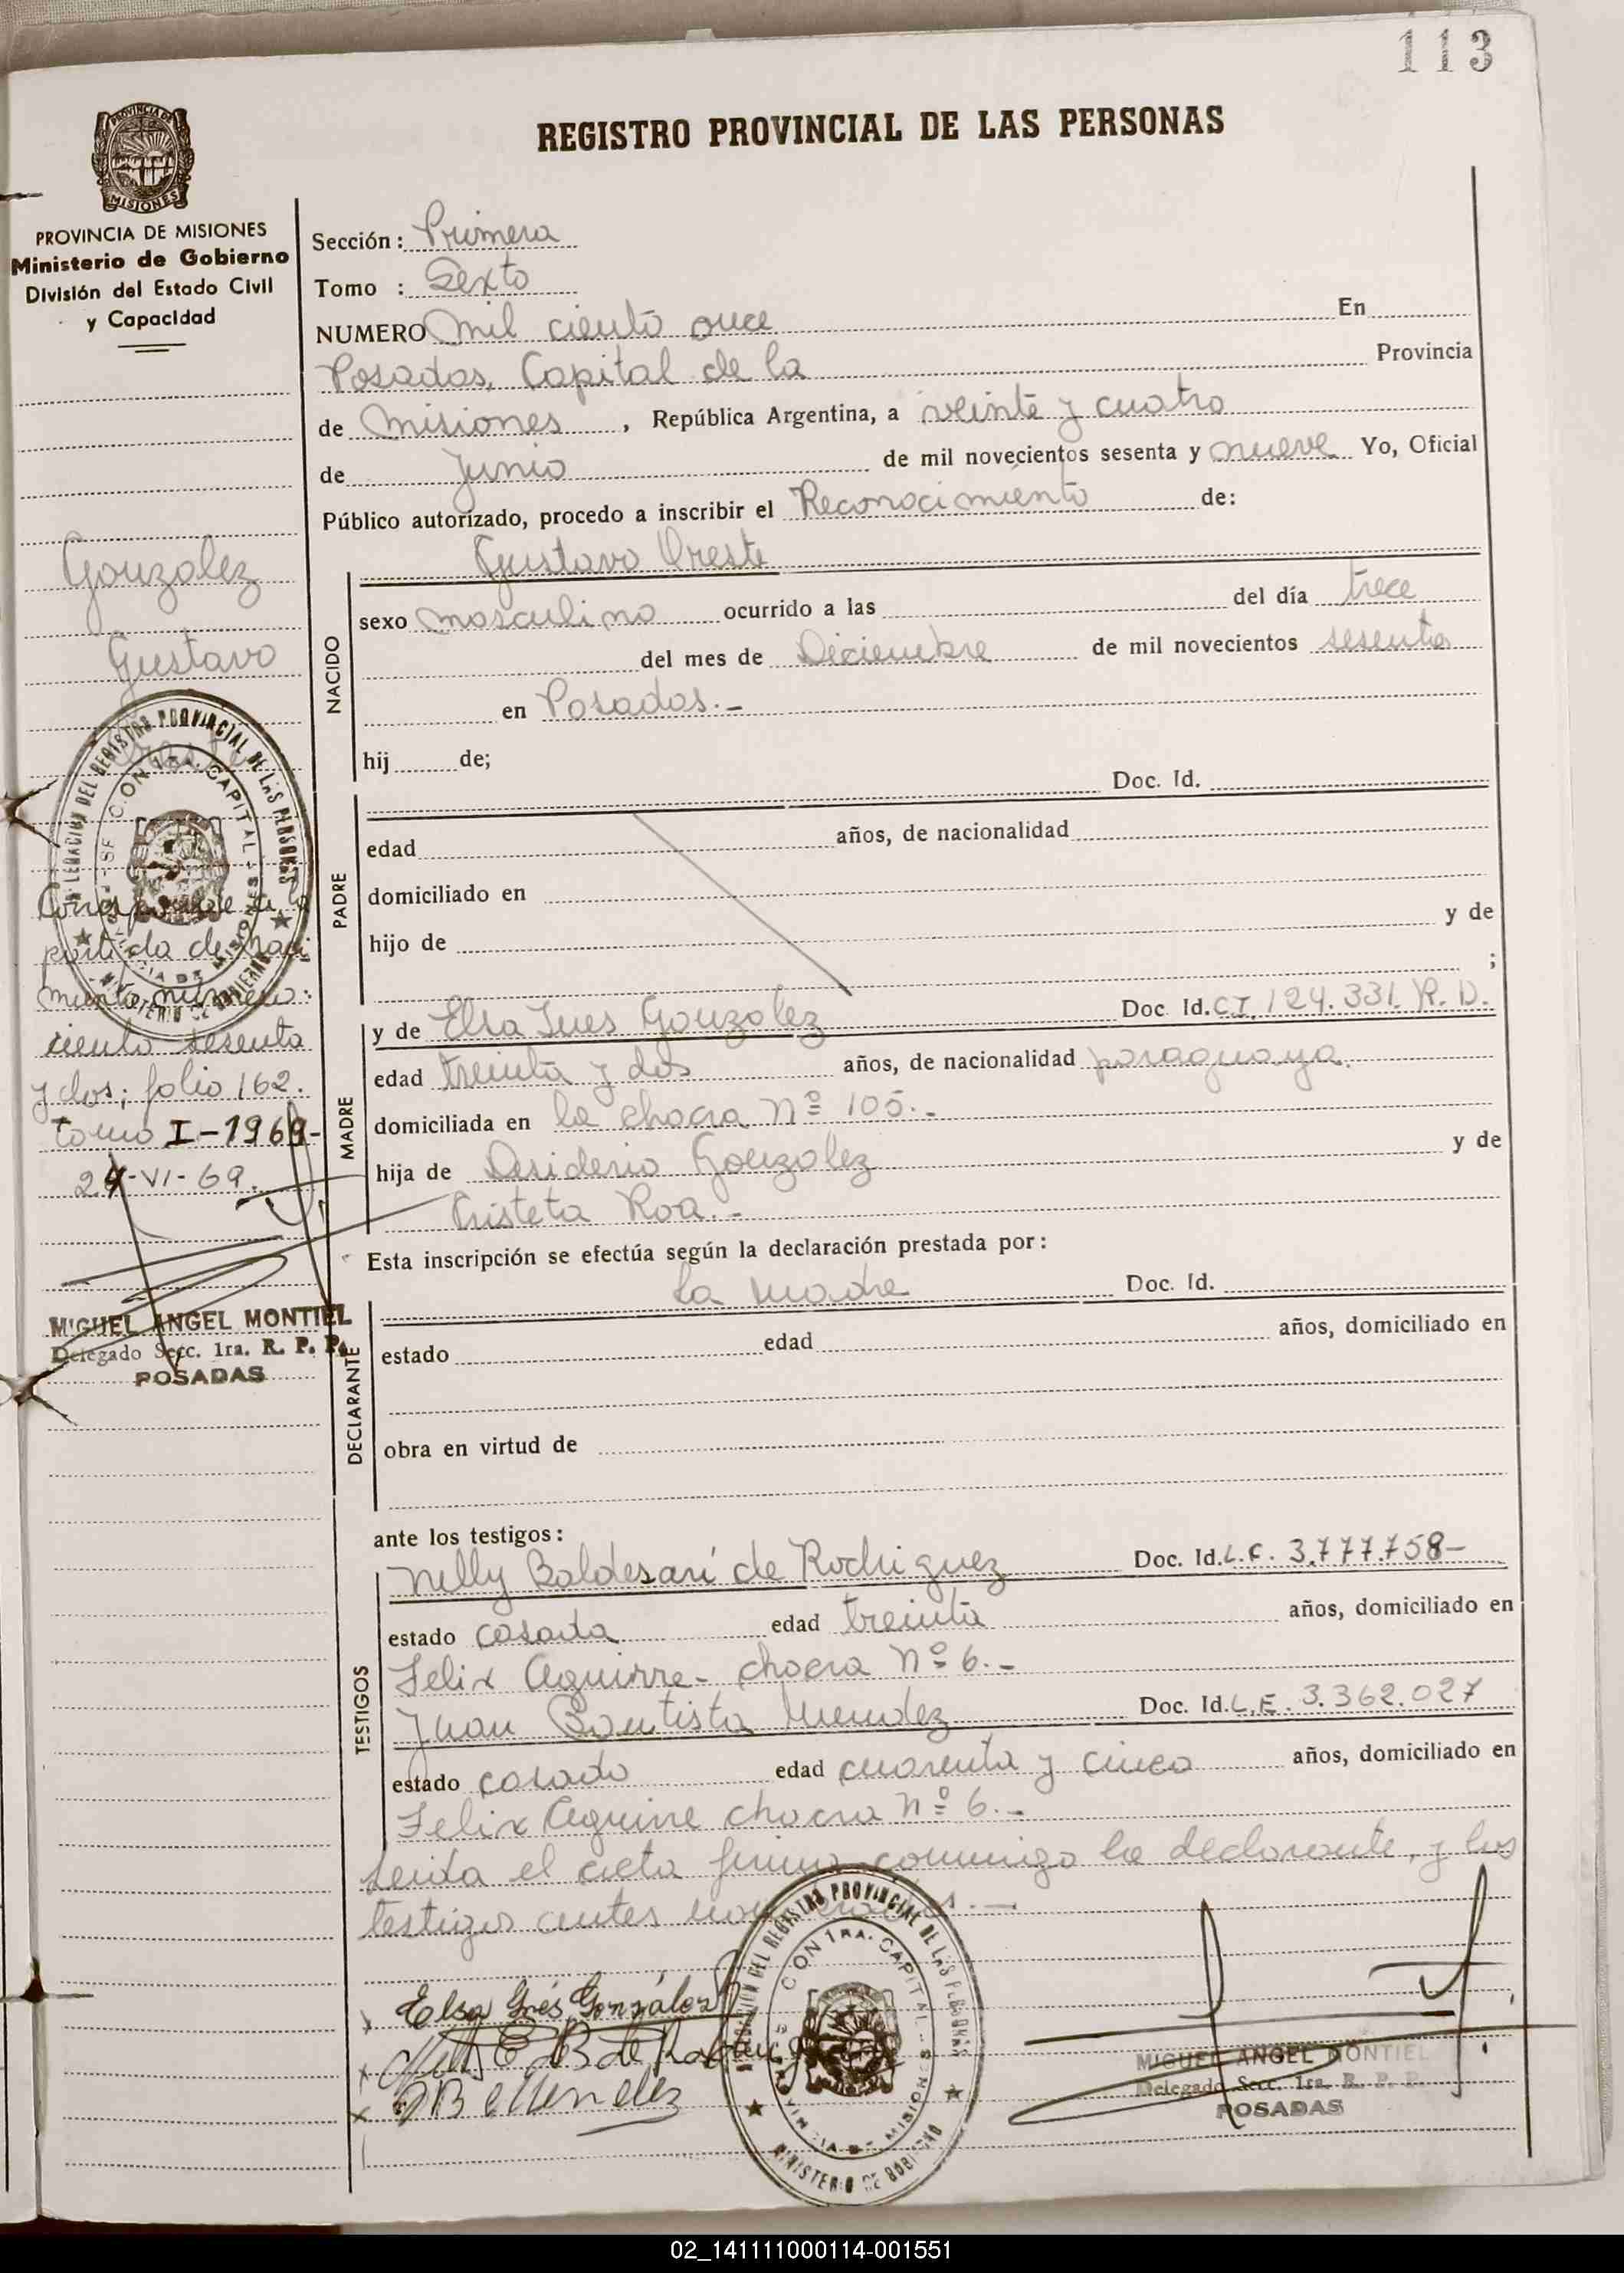 113
REGISTRO PROVINCIAL DE LAS PERSONAS
MISIONES
PROVINCIA DE MISIONES
Ministerio de Gobierno
División del Estado Civil
y Capacidad
Gonzalez
Gustavo
Oreste
Corresponde a la
partida de naci
miento número:
ciento sesenta
y dos; folio 162.
tomo I-1969-
24-VI-69.
MIGUEL ANGEL MONTIEL
Delegado Secc. 1ra. R. P. P.
POSADAS
Sección: Primera
Tomo : Sexto
NUMERO mil ciento once En
Posadas, Capital de la Provincia
de Misiones, República Argentina, a veinte y cuatro
de Junio de mil novecientos sesenta y nueve Yo, Oficial
Público autorizado, procedo a inscribir el Reconocimiento de:
NACIDO
Gustavo Oreste
sexo masculino ocurrido a las del día trece
del mes de Diciembre de mil novecientos sesenta
en Posadas.-
hij de;
PADRE
Doc. Id.
edad años, de nacionalidad
domiciliado en
hijo de y de
;
MADRE
y de Elsa Ines Gonzalez Doc Id. C.I. 124.331. R.D.
edad treinta y dos años, de nacionalidad paraguaya.
domiciliada en la chacra Nº 105.-
hija de Desiderio Gonzalez y de
Cristeta Roa.-
Esta inscripción se efectúa según la declaración prestada por:
DECLARANTE
la madre Doc. Id.
estado edad años, domiciliado en
obra en virtud de
ante los testigos:
TESTIGOS
Nelly Baldesari de Rodriguez Doc. Id. L.C. 3.777.758-
estado casada edad treinta años, domiciliado en
Felix Aguirre- chacra Nº 6.-
Juan Bautista Mendez Doc. Id. L.E. 3.362.027
estado casado edad cuarenta y cinco años, domiciliado en
Felix Aguirre chacra Nº 6.-
Leida el acta firma conmigo la declarante, y los
testigos antes nombrados.-
Elsa Inés González
B de Rodriguez
JB Mendez
DELEGACION DEL REGISTRO PROVINCIAL DE LAS PERSONAS
SECCION 1RA. CAPITAL
PROVINCIA DE MISIONES
MINISTERIO DE GOBIERNO
MIGUEL ANGEL MONTIEL
Delegado Secc. 1ra. R. P. P.
POSADAS
02_141111000114-001551